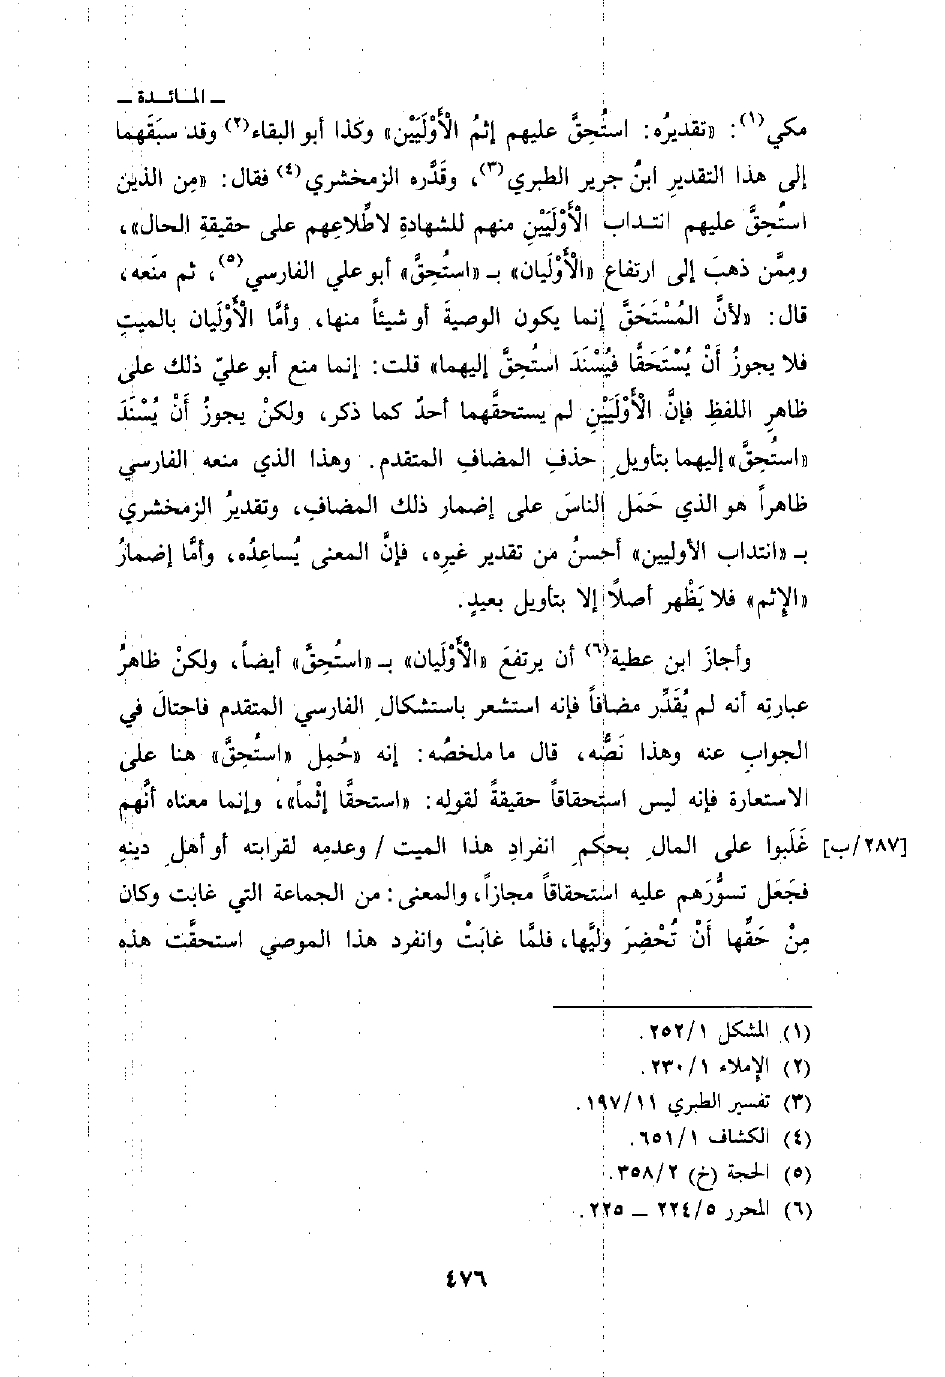 ـ المـائـدة ـ
مكي(١): «تقديرُه: استُحِقَّ عليهم إثمُ الْأَوْلَيَيْن» وكذا أبو البقاء(٢) وقد سبَقَهما
إلى هذا التقديرِ ابنُ جرير الطبري(٣)، وقَدَّره الزمخشري(٤) فقال: «مِن الذين
استُحِقَّ عليهم انتداب الْأَوْلَيَيْنِ منهم للشهادةِ لاطِّلاعِهم على حقيقةِ الحال»،
ومِمَّن ذهبَ إلى ارتفاع «الْأَوْلَيان» بـ «استُحِقَّ» أبو علي الفارسي(٥)، ثم منَعه،
قال: «لأنَّ المُسْتَحَقَّ إنما يكون الوصيةَ أو شيئاً منها، وأمَّا الْأَوْلَيان بالميتِ
فلا يجوزُ أَنْ يُسْتَحَقَّا فيُسْنَدَ استُحِقَّ إليهما» قلت: إنما منع أبو عليّ ذلك على
ظاهرِ اللفظِ فإنَّ الْأَوْلَيَيْنِ لم يستحقَّهما أحدٌ كما ذكر، ولكنْ يجوزُ أَنْ يُسْنَدَ
«استُحِقَّ» إليهما بتأويلِ حذفِ المضافِ المتقدم. وهذا الذي منعه الفارسي
ظاهراً هو الذي حَمَل الناسَ على إضمار ذلك المضافِ، وتقديرُ الزمخشري
بـ «انتداب الأوليين» أحسنُ من تقدير غيرِه، فإنَّ المعنى يُساعِدُه، وأمَّا إضمارُ
«الإِثم» فلا يَظْهر أصلاً إلا بتأويل بعيدٍ.
وأجازَ ابن عطية(٦) أن يرتفعَ «الْأَوْلَيان» بـ «استُحِقَّ» أيضاً، ولكنْ ظاهرُ
عبارتِه أنه لم يُقَدِّر مضافاً فإنه استشعر باستشكالِ الفارسي المتقدم فاحتالَ في
الجوابِ عنه وهذا نَصُّه، قال ما ملخصُه: إنه «حُمِل «استُحِقَّ» هنا على
الاستعارة فإنه ليس استحقاقاً حقيقةً لقوله: «استحقَّا إثْماً»، وإنما معناه أنَّهم
[٢٨٧/ب] غَلَبوا على المالِ بحكمِ انفرادِ هذا الميت / وعدمِه لقرابته أو أهلِ دينهِ
فجَعَل تسوُّرَهم عليه استحقاقاً مجازاً، والمعنى: من الجماعة التي غابت وكان
مِنْ حَقِّها أَنْ تُحْضِرَ وليَّها، فلمَّا غابَتْ وانفرد هذا الموصي استحقَّت هذه
(١) المشكل ٢٥٢/١.
(٢) الإِملاء ٢٣٠/١.
(٣) تفسير الطبري ١٩٧/١١.
(٤) الكشاف ٦٥١/١.
(٥) الحجة (خ) ٣٥٨/٢.
(٦) المحرر ٢٢٤/٥ ــ ٢٢٥.
٤٧٦